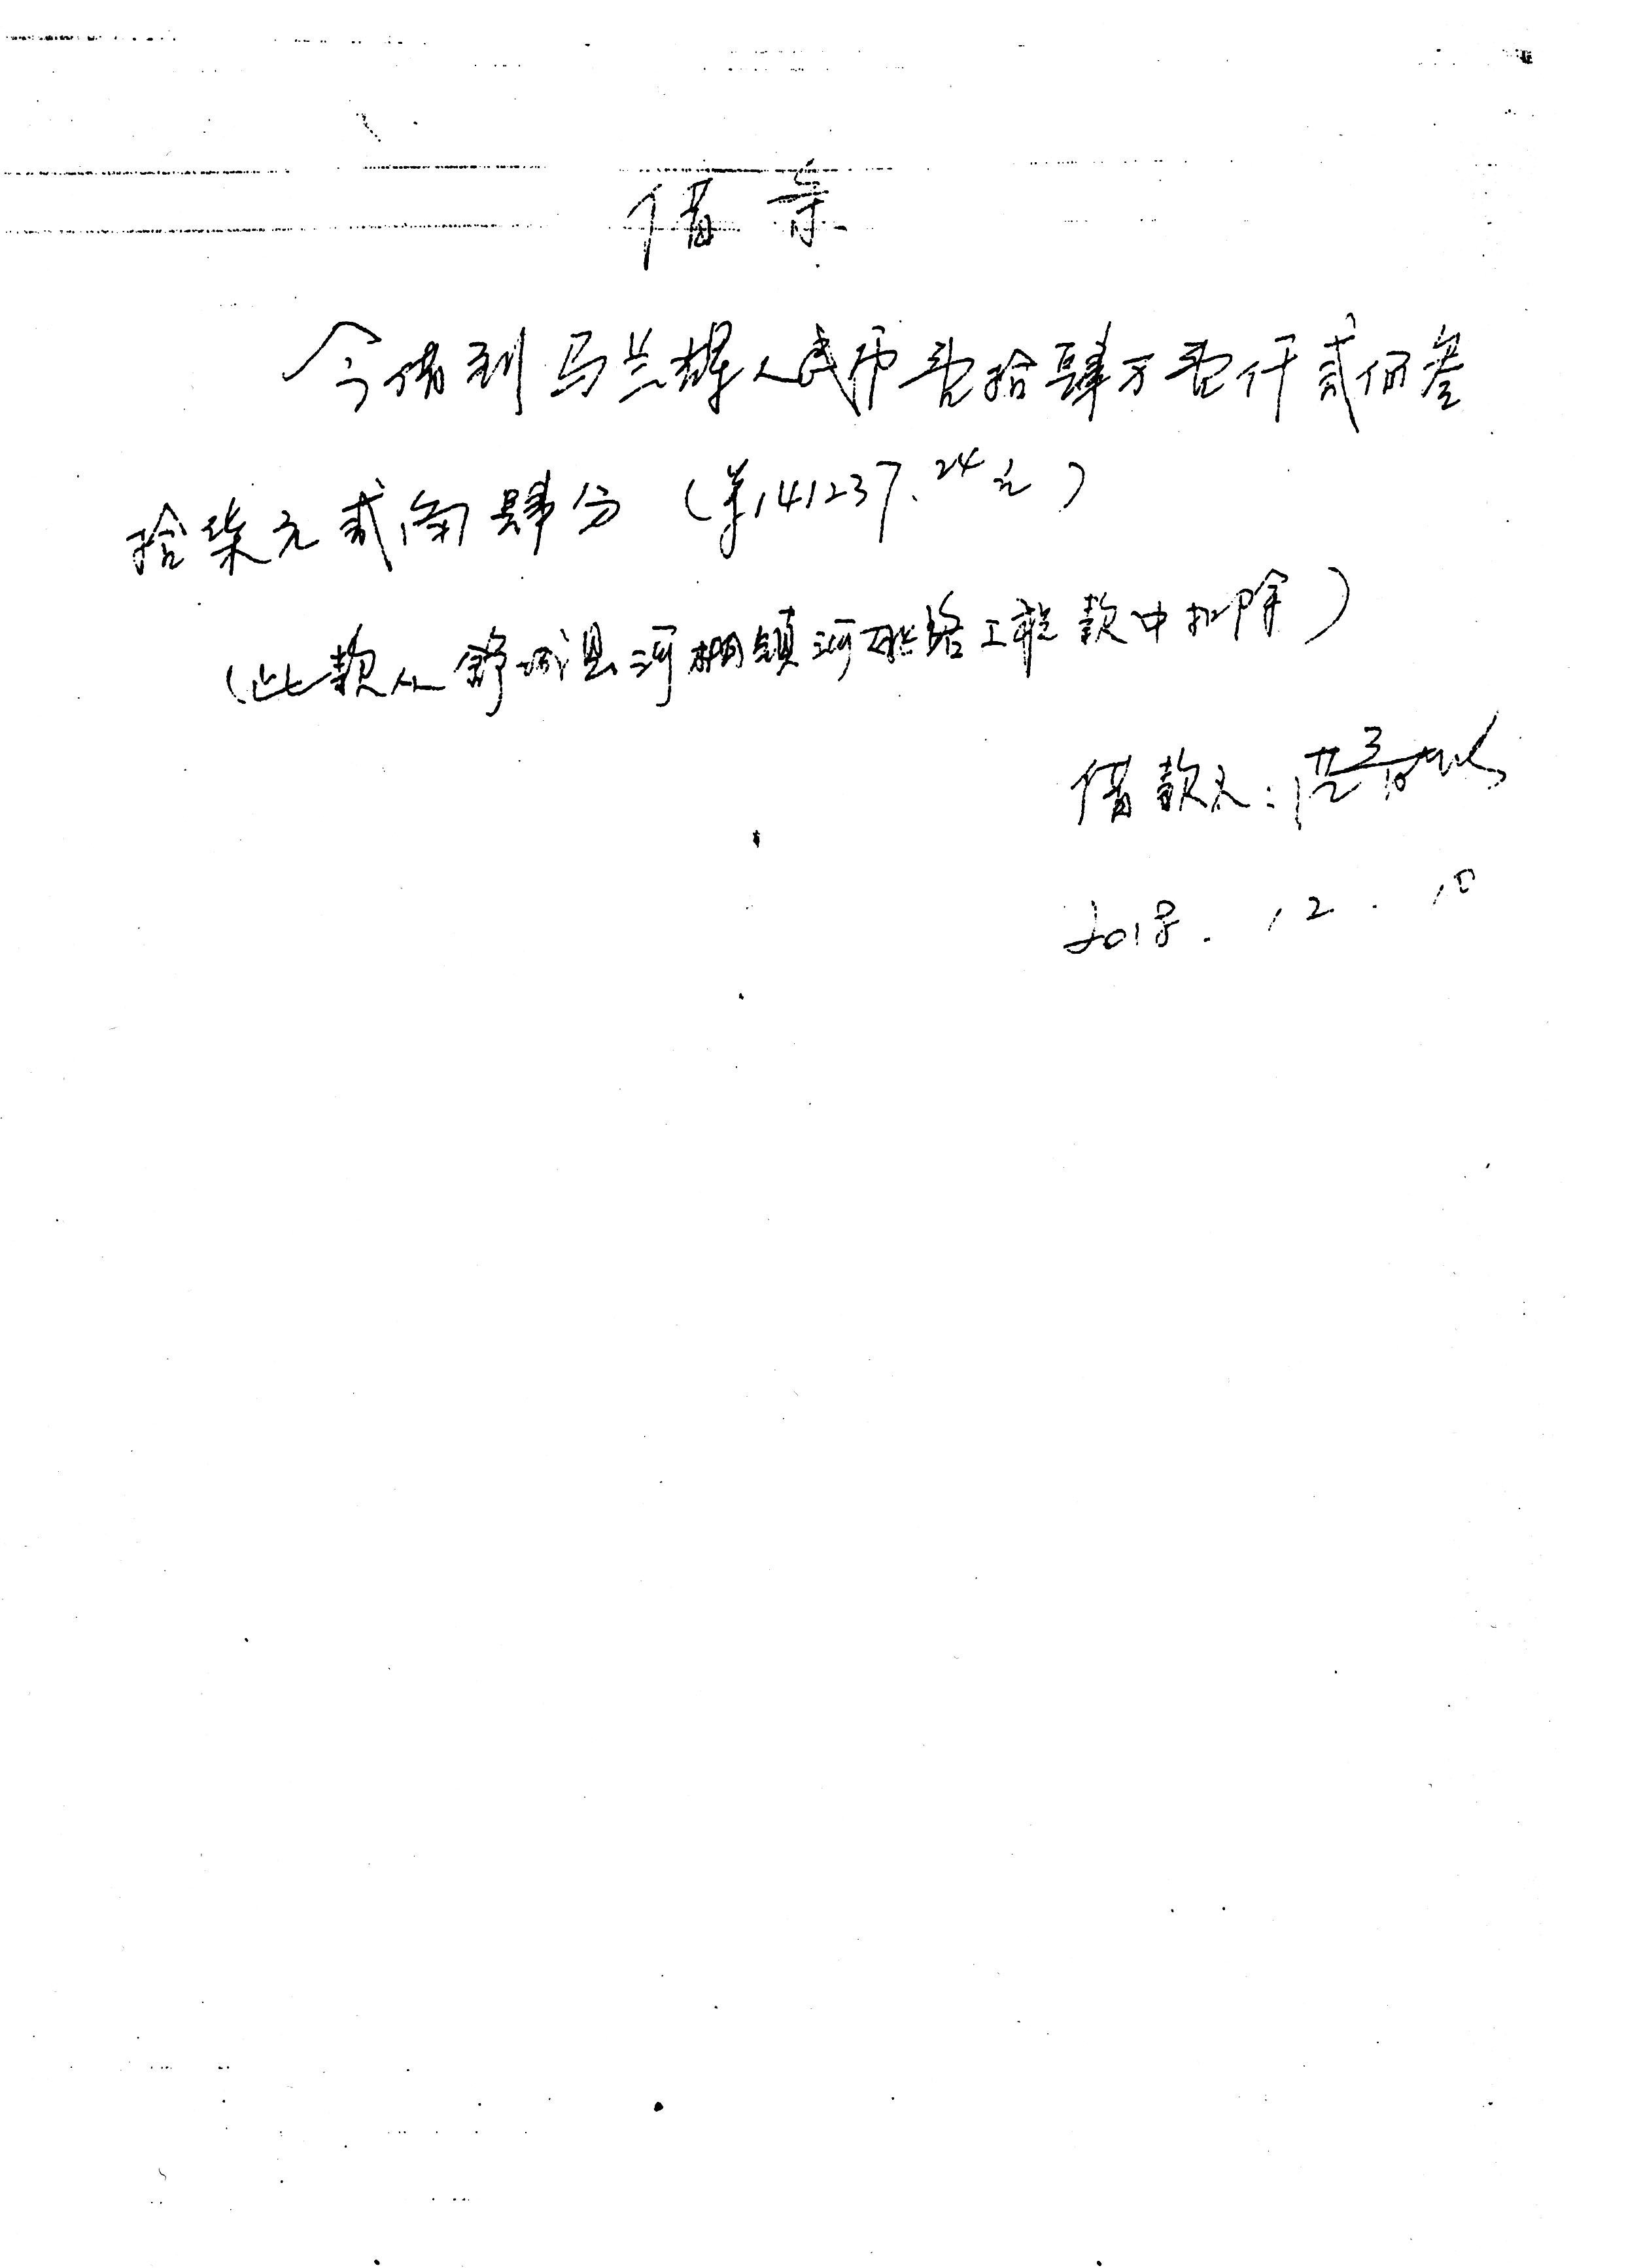 借条
今借到马兰耀人民币壹拾肆万壹仟贰佰叁
拾柒元贰角肆分（¥141237.24元）
（此款从舒城县河棚镇河 路工程款中扣除）
借款人：
2018.12.10